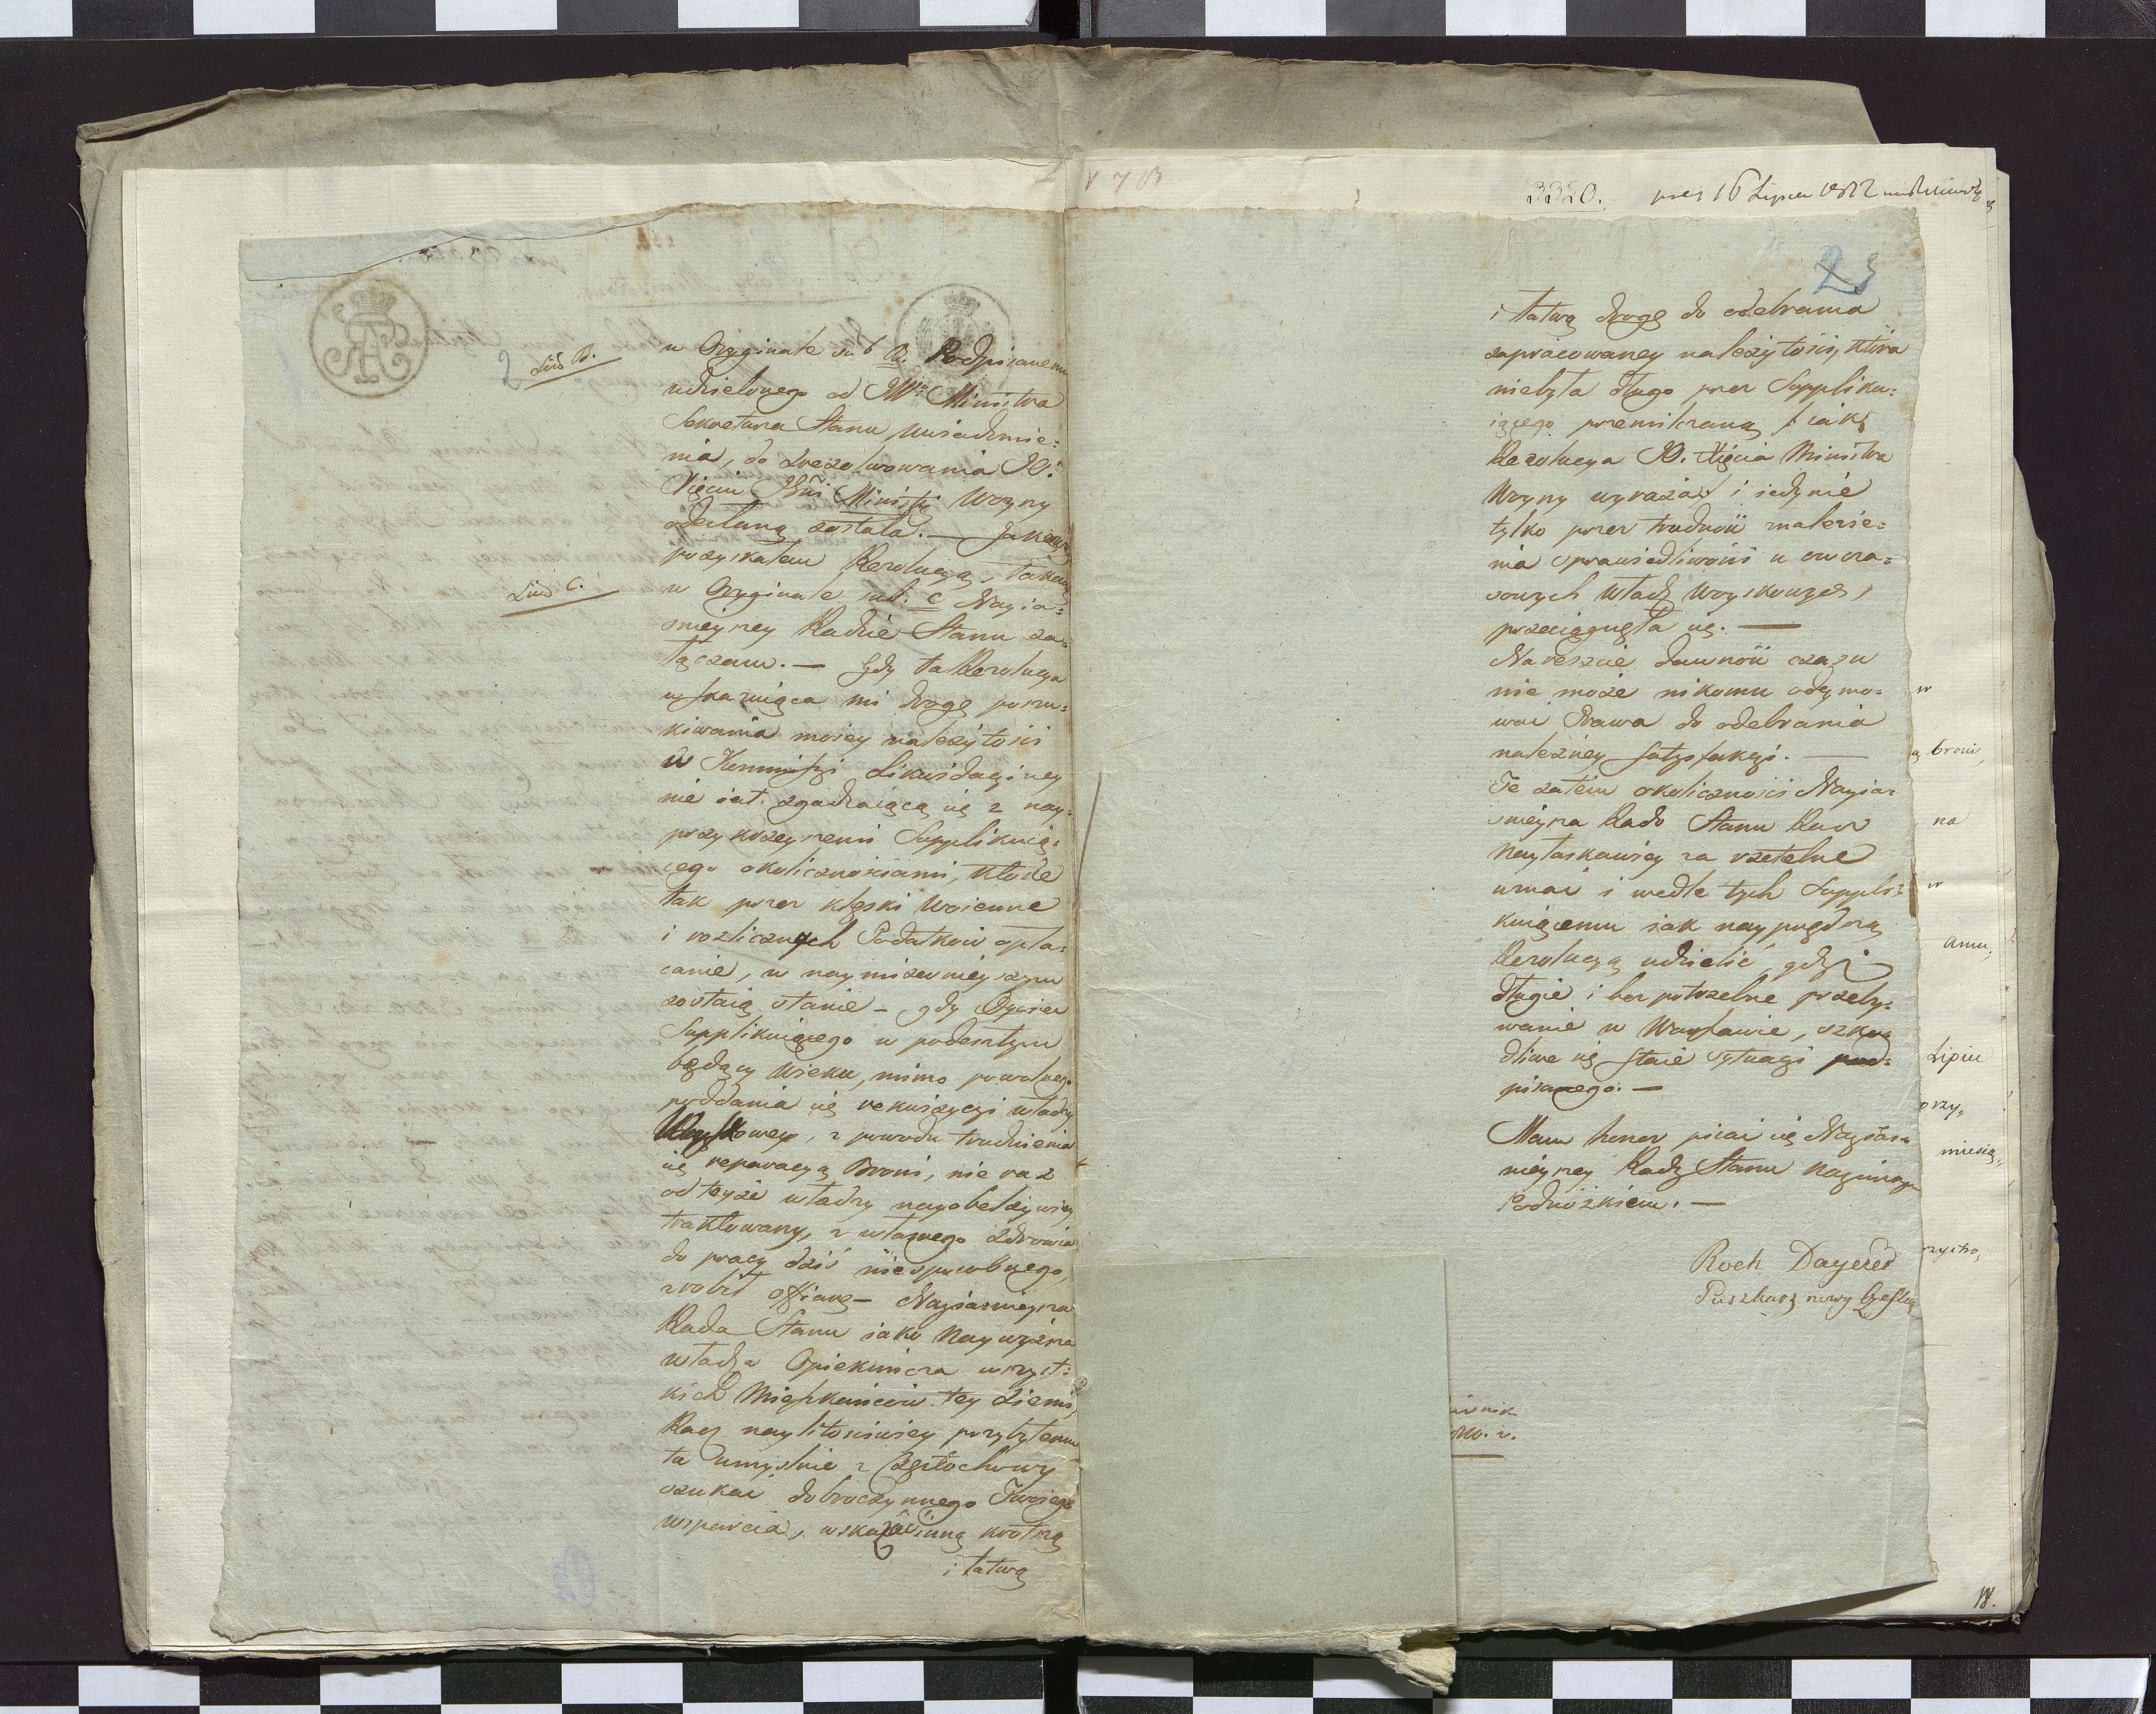 3320. prez 16 Lipca 1812
23
2
Lit. B.
w Oryginale sub B. Podpisanemu
udzielonego od JW. Ministra
Sekretarza Stanu uwiadomie:
nia, do zrezolwowania JO.
Xięciu Ministrowi Woyny
odesłaną została. — Jakową
pozyskałem Rezolucyą, takową
Lit. C.
w Oryginale sub. C Nayia:
śnieyszey Radzie Stanu za:
łączam. — Gdy ta Rezolucya
wskazuiąca mi drogę poszu:
kiwania moiey należytości
w Kommissyi Likwidacyiney
nie iest zgadzaiącą się z nay:
przykrzeyszemi Supplikuią:
cego okolicznościami, które
tak przez klęski woienne
i rozlicznych Podatków opła:
canie, w naymizernieyszym
zostaią stanie – gdy Oyciec
Supplikuiącego w podeszłym
będący wieku, mimo powolnego
poddania się rekwizycyi władzy
Woyskowey, z powodu trudnienia
się reparacyą Broni, nie raz
od teyże władzy nayobelżywiey
traktowany, z własnego zdrowia
do pracy dziś niesposobnego,
zrobił offiarę – Nayiaśnieysza
Rada Stanu iako Naywyższa
władza Opiekuńcza wszyst:
kich Mieszkańców tey Ziemi,
Racz naylitościwiey przybyłemu
tu umyślnie z Częstochowy
szukać dobroczynnego Twoiego
wsparcia, wskazać inną krótszą
i łatwą
i łatwą drogę do odebrania
zapracowaney należytości, która
niebyła długo przez Suppliku:
iącego przemilczaną iak
Rezolucya JO. Xięcia Ministra
Woyny wyraża i iedynie
tylko przez trudność znalezie:
nia sprawiedliwości w owcza:
sowych władz woyskowych,
przeciągnęła się. —
Nareszcie dawność czasu
nie może nikomu odeymo:
wać Prawa do odebrania
należney satysfakcyi. —
Te zatem okoliczności Nayia:
śnieysza Rado Stanu Racz
Nayłaskawiey za rzetelne
uznać i wedle tych Suppli:
kuiącemu iak nayprędszą
Rezolucyą udzielić, gdyż
długie i bezpotrzebne przeby:
wanie w Warszawie, szko:
dliwe się staie sytuacyi pod:
pisanego. —
Mam honor pisać się Nayiaś:
nieyszey Rady Stanu Nayniższym
Podnóżkiem. —
Roch
Puszkarz nowy
w
broni,
na
w
anu,
Lipiu
orzy,
miesią,
18.